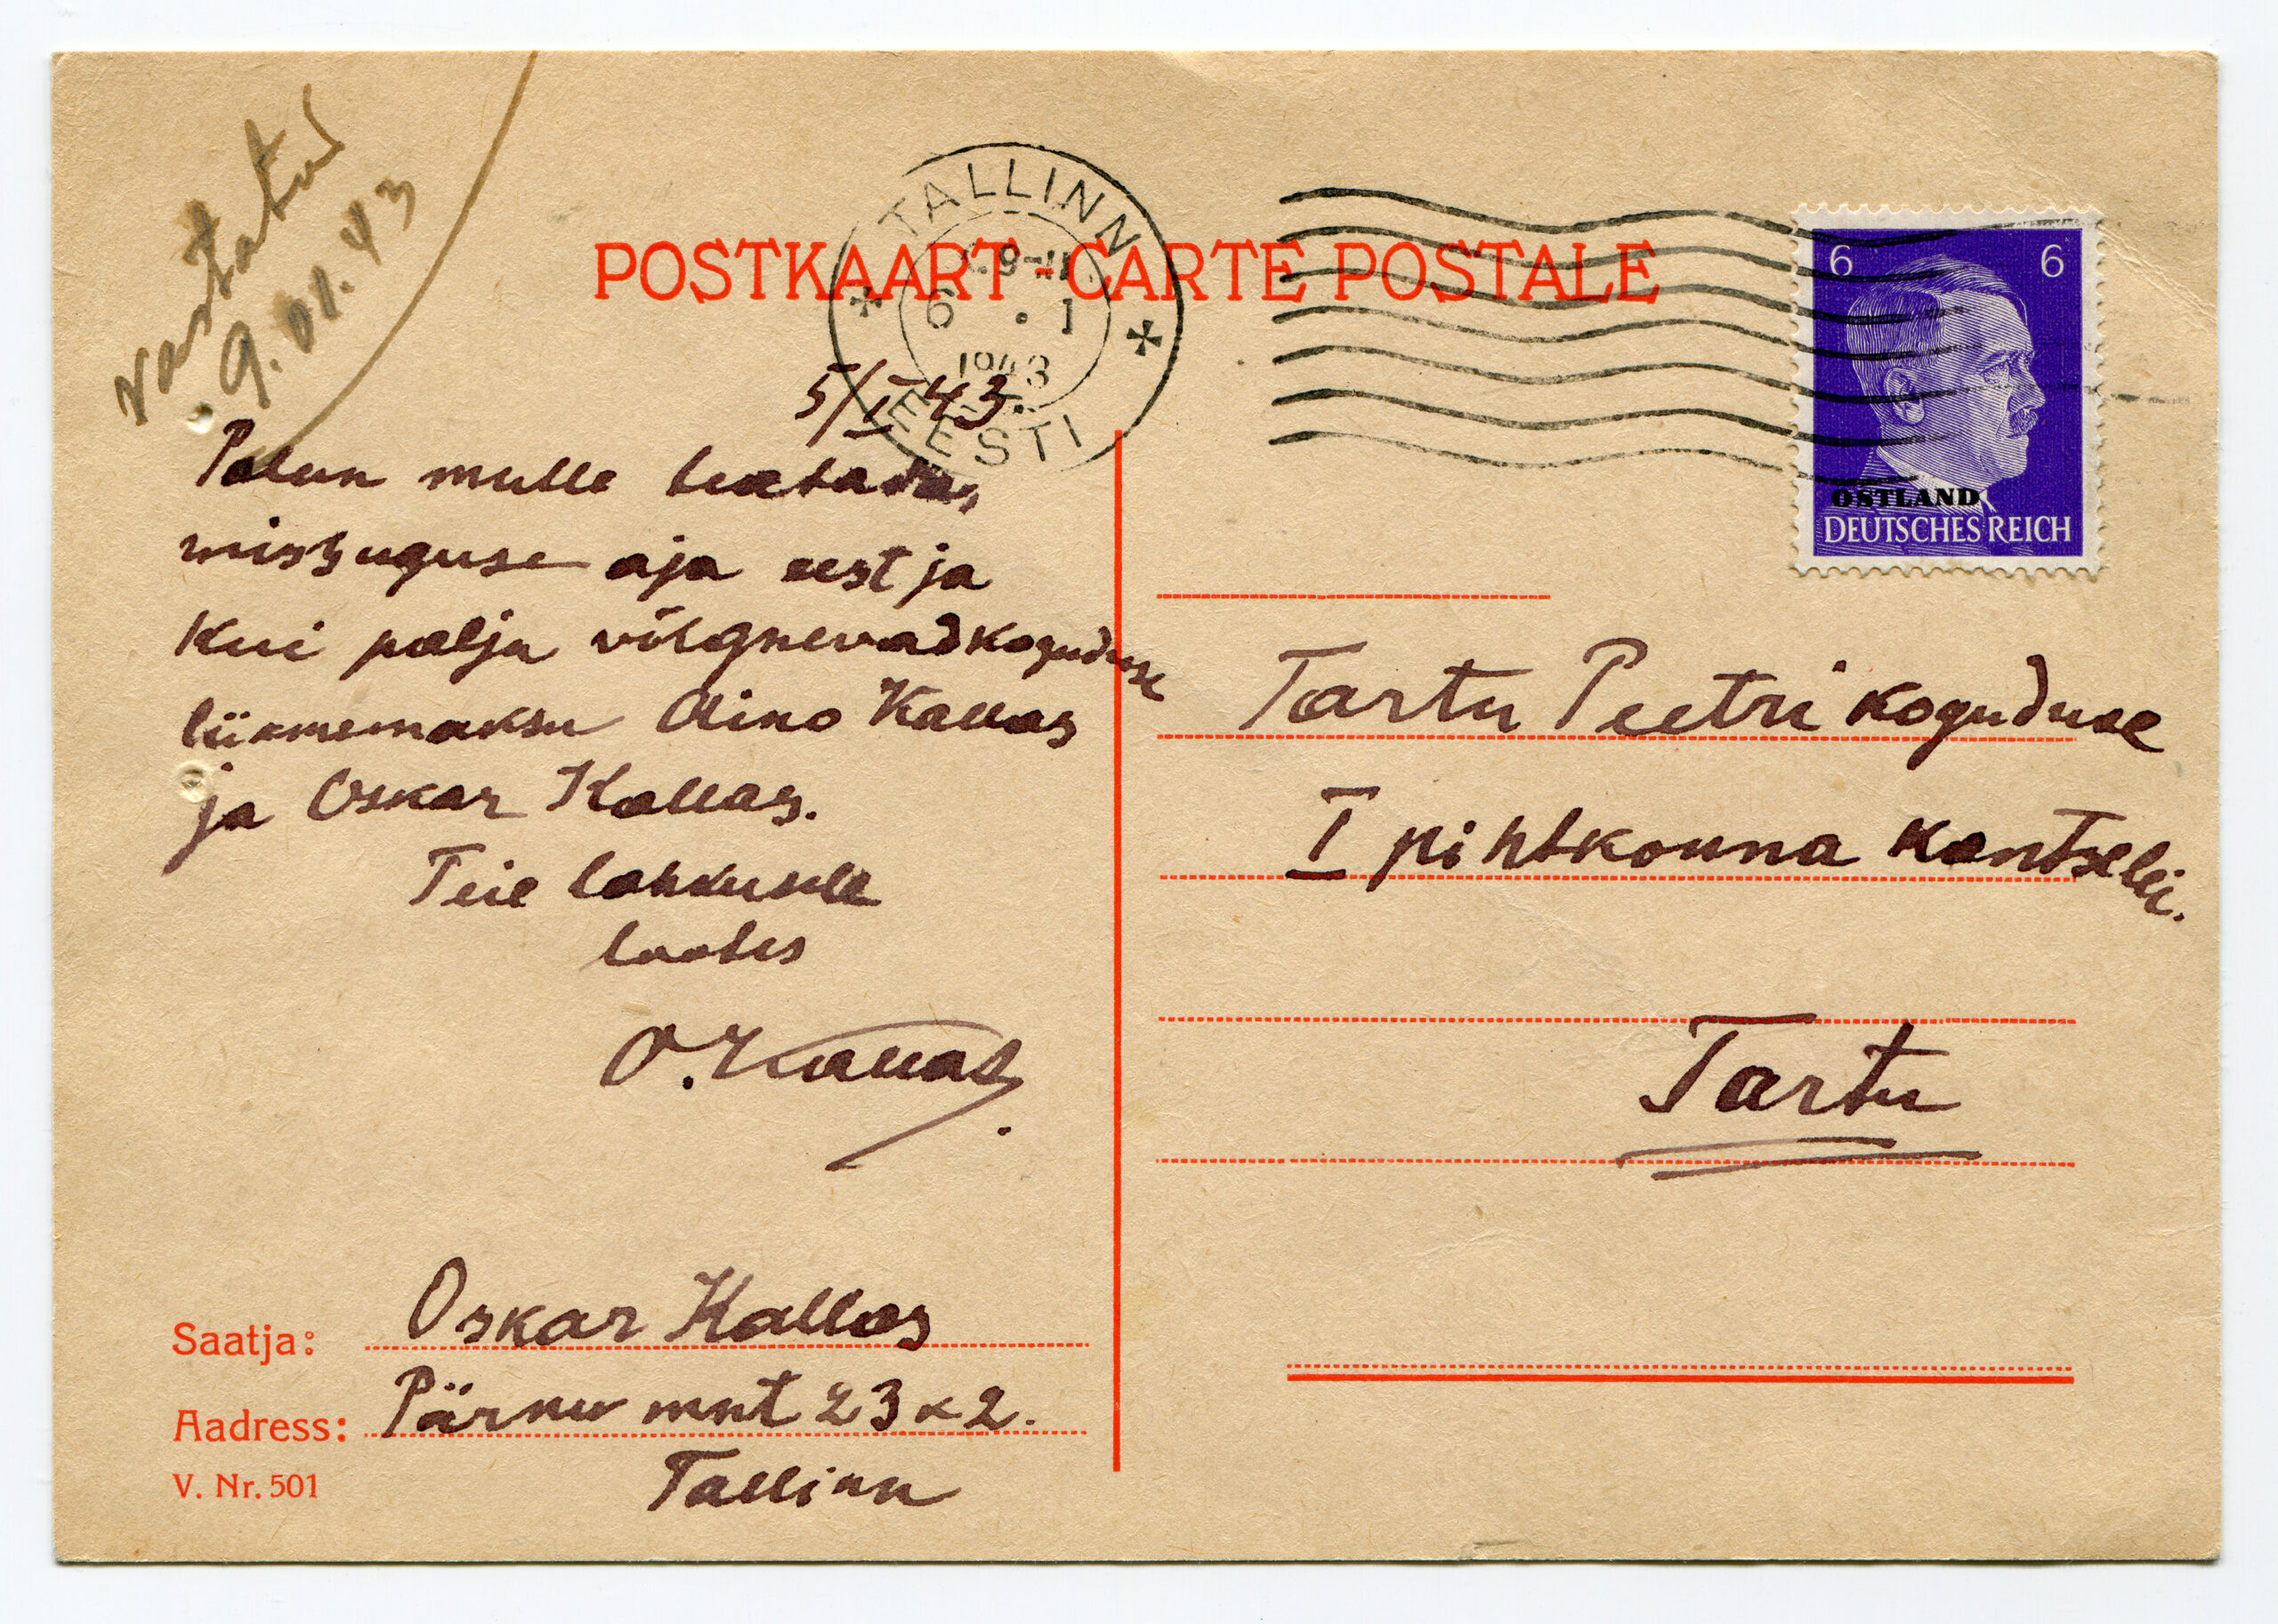 vastatud
9.01.43
POSTKAART - CARTE POSTALE
TALLINN
9-11
6 . 1
1943
EESTI
6 6
OSTLAND
DEUTSCHES REICH
5/I 43.
Palun mulle teatada,
missuguse aja eest ja
kui palju võlgnevad koguduse
liikmemaksu Aino Kallas
ja Oskar Kallas.
Teie lahkusele
lootes
O. Kallas.
Tartu Peetri koguduse
I pihtkonna kantselei.
Tartu
Saatja: Oskar Kallas
Aadress: Pärnu mnt 23 k 2.
Tallinn
V. Nr. 501